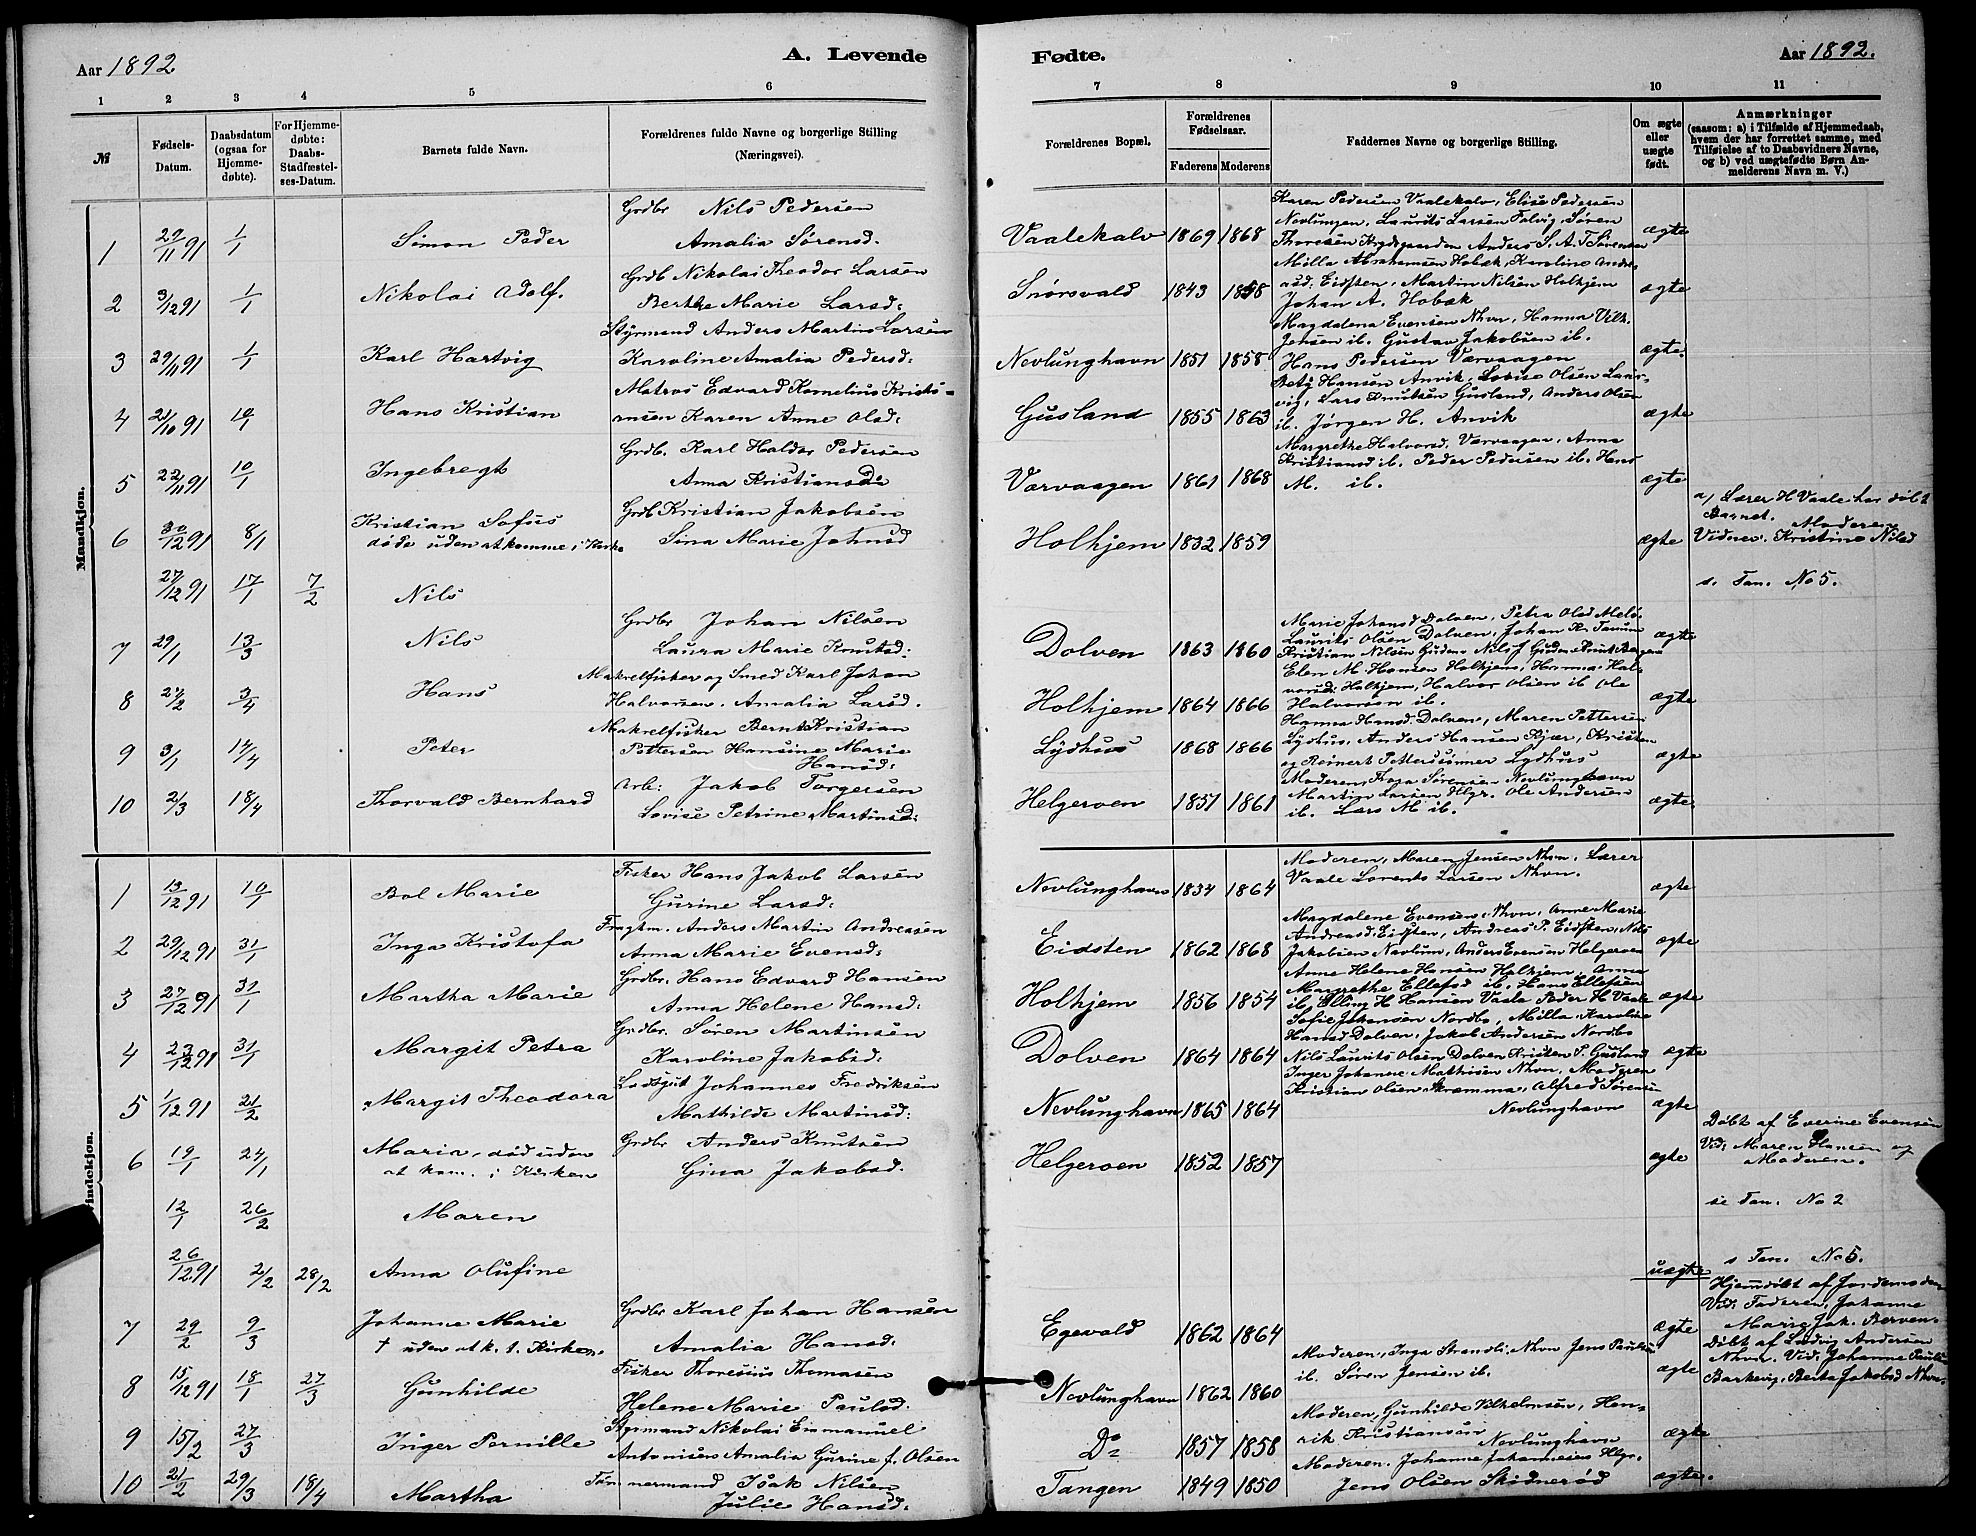 Aar 1892
A. Levende
Fødte.
Aar 1892.
1 2 3 4 5 6
7 8 9 10 11
№
Fødsels-Datum.
Daabsdatum (ogsaa for Hjemme-døbte).
For Hjemme-døbte: Daabs-Stadfæstel-ses-Datum.
Barnets fulde Navn.
Forældrenes fulde Navne og borgerlige Stilling
(Næringsvei).
Forældrenes Bopæl.
Forældrenes Fødselsaar.
Faderens Moderens
Faddernes Navne og borgerlige Stilling.
Om ægte eller uægte født.
Anmærkninger
(saasom: a) i Tilfælde af Hjemmedaab,
hvem der har forrettet samme, med
Tilføielse af to Daabsvidners Navne,
og b) ved uægtefødte Børn An-
melderens Navn m. V.)
Mandkjøn.
1 29/11 91 1/1 Simon Peder
Grdbr Nils Pedersen
Amalia Sørensd.
Vaalekalv 1869 1868
Karen Pedersen Vaalekalv, Elise Pedersen
Nevlungen, Laurits Larsen Talvig, Søren
Thoresen Anders S. A. T. Sørensen
ægte
2 3/12 91 1/1 Nikolai Adolf.
Grdb. Nikolai Theodor Larsen
Berthe Marie Larsd:
Snørsvald 1843 1858
Mølla Abrahamsen Hobæk, Karoline Andre-
asd: Eidsten, Martin Nilsen Holhjem
Johan A. Hobæk
ægte
3 29/11 91 1/1 Karl Hartvig
Styrmand Anders Martin Larsen
Karoline Amalia Pedersd:
Nevlunghavn 1851 1858
Magdalena Evensen Nhvn, Hanna Vilh.
Jensen ib. Gustav Jakobsen ib.
Hans Pedersen Værvaagen
ægte.
4 21/10 91 10/1 Hans Kristian
Matros Edvard Kornelius Krist-
ensen Karen Anne Olsd:
Gusland 1855 1863
Betzy Hansen Anvik, Lovise Olsen Laur-
vig, Lars Knutsen Gusland, Anders Olsen
ib. Jørgen H. Anvik
ægte
5 22/11 91 10/1 Ingebregt
Grdb. Karl Haldor Pedersen
Anna Kristiansd:
Værvaagen 1861 1868
Margrethe Halvorsd. Værvaagen, Anna
Kristiansd ib. Peder Pedersen ib. Hans
M. ib.
ægte
6 30/12 91 8/1 Kristian Sofus
døde uden at komme i Kirke
Grdb Kristian Jakobsen
Sina Marie Johnsd
Holhjem 1832 1859
ægte
a) Lærer H Vaale har døbt
Barnet. Moderen
Vidner. Kristine Nilsd
27/12 91 17/1 7/2 Nils
s. Tan. No 5.
7 29/1 13/3 Nils
Grdbr Johan Nilsen
Laura Marie Knutsd:
Dolven 1863 1860
Marie Johansd Dolven, Petra Olsd Melø
Laurits Olsen Dolven, Johan Kr. Tanum
Kristian Nilsen Gudm Nils J Gudm
ægte
8 24/2 3/4 Hans
Makrelfisker og Smed Karl Johan
Halvorsen. Amalia Larsd.
Holhjem 1864 1866
Elen M. Hansen Holhjem, Hanna Hal-
vorsd: Holhjem, Halvor Olsen ib Ole
Halvorsen ib.
ægte
9 3/1 14/4 Peter
Makrelfisker Bernt Kristian
Pettersen Hansine Marie
Hansd:
Lydhus 1868 1866
Hanna Hansd: Dolven, Maren Pettersen
Lydhus, Anders Hansen Kjær, Kristen
og Reinert Petterssønner Lydhus
ægte
10 2/3 18/4 Thorvald Bernhard
Arb: Jakob Torgersen
Lovise Petrine Martinsd:
Helgeroen 1851 1861
Moderen, Thora Sørensen Nevlunghavn
Martin Larsen Hlgr. Ole Andersen
ib. Lars M ib.
ægte
Kvindekjøn.
1 13/12 91 10/1 Bol Marie
Fisker Hans Jakob Larsen
Gurine Larsd:
Nevlunghavn 1834 1864
Moderen, Maren Jensen Nhvn. Lærer
Vaale Lorents Larsen Nhvn.
ægte
2 29/12 91 31/1 Inga Kristofa
Fragtm. Anders Martin Andreassen
Anna Marie Evensd:
Eidsten 1862 1868
Magdalene Evensen Nhvn, Anne Marie
Andreasd: Eidsten, Andreas P. Eidsten, Nils
Jakobsen Nevlun, Anders Evensen Helgeroen
ægte
3 27/12 91 31/1 Martha Marie
Grdbr. Hans Edvard Hansen
Anna Helene Hansd:
Holhjem 1856 1854
Anne Helene Hansen Holhjem, Anna
Margrethe Ellefsd ib. Hans Ellefsen
ib, Elling H Hansen Vaale Peder H Vaale
ægte
4 23/12 91 31/1 Margit Petra
Grdbr. Søren Martinsen
Karoline Jakobsd:
Dolven 1864 1864
Sofie Johansen Nordbø, Milla Karoline
Hansd Dolven, Jakob Andersen Nordbø
Nils Laurits Olsen Dolven Kristen P. Gusland
ægte
5 1/12 91 21/2 Margit Theodora
Lodsgut Johannes Fredriksen
Mathilde Martinsd:
Nevlunghavn 1865 1864
Inger Johanne Mathisen Nhvn, Moderen
Kristian Olsen Kramma, Alfred Sørensen
Nevlunghavn
ægte
6 19/1 24/1 Maria, død uden
at kom. i Kirken
Grdbr Anders Knutsen
Gina Jakobsd.
Helgeroen 1852 1857
ægte
Døbt af Everine Evensen
Vid: Maren Hansen og
Moderen.
12/1 26/2 Maren
se Tan. No 2
26/12 91 2/2 28/2 Anna Olufine
uægte
s Tan. No 5.
7 29/2 9/3 Johanne Marie
† uden at k. t. Kirken.
Grdbr Karl Johan Hansen
Amalia Hansd:
Egevald 1862 1864
ægte
Hjemdøbt af Jordemoderen
Vid: Faderen, Johanne
Marie Jak. Berven.
8 15/12 91 18/1 27/3 Gunhilde
Fisker Thoresius Thomasen
Helene Marie Paulsd.
Nevlunghavn 1862 1860
Moderen, Inga Strandli Nhvn Jens Paulsen
ib. Søren Jensen ib.
ægte
Døbt af Ludvig Andersen
Nhvn. Vid: Johanne Pauls
Barkevig, Berta Jakobsd Nhvn.
9 15/2 27/3 Inger Pernille
Styrmand Nikolai Emmanuel
Antonisen Amalia Gurine f. Olsen
Do 1857 1858
Moderen, Gunhilde Vilhelmsen, Hen-
rik Kristiansen
Nevlunghavn
ægte
10 21/2 29/3 18/4 Martha
Tømmermand Isak Nilsen
Julie Hansd:
Tangen 1849 1850
Moderen. Johanne Johannesen Hlgr.
Jens Olsen Skidnerød
ægte.